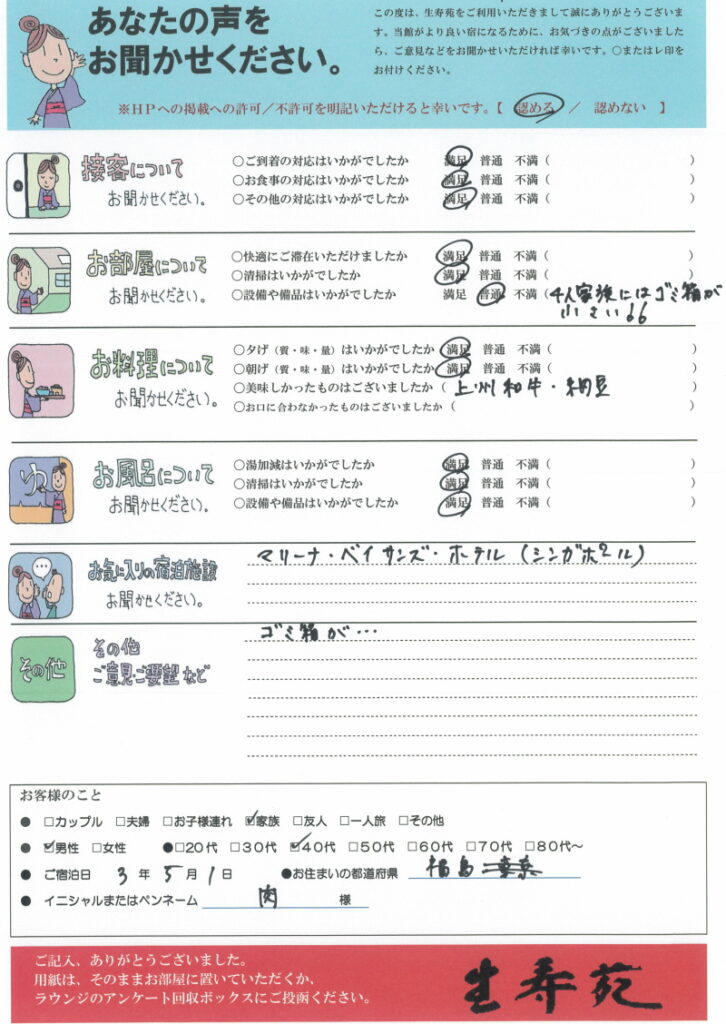 あなたの声を
お聞かせください。
この度は、生寿苑をご利用いただきまして誠にありがとうございま
す。当館がより良い宿になるために、お気づきの点がございました
ら、ご意見などをお聞かせいただければ幸いです。○またはレ印を
お付けください。
※HPへの掲載への許可／不許可を明記いただけると幸いです。【 認める ／ 認めない 】
接客について
お聞かせください。
○ご到着の対応はいかがでしたか 満足 普通 不満（ ）
○お食事の対応はいかがでしたか 満足 普通 不満（ ）
○その他の対応はいかがでしたか 満足 普通 不満（ ）
お部屋について
お聞かせください。
○快適にご滞在いただけましたか 満足 普通 不満（ ）
○清掃はいかがでしたか 満足 普通 不満（ ）
○設備や備品はいかがでしたか 満足 普通 不満（4人家族にはゴミ箱が
小さい ）
お料理について
お聞かせください。
○夕げ（質・味・量）はいかがでしたか 満足 普通 不満（ ）
○朝げ（質・味・量）はいかがでしたか 満足 普通 不満（ ）
○美味しかったものはございましたか（ 上州和牛・納豆 ）
○お口に合わなかったものはございましたか（ ）
ゆ
お風呂について
お聞かせください。
○湯加減はいかがでしたか 満足 普通 不満（ ）
○清掃はいかがでしたか 満足 普通 不満（ ）
○設備や備品はいかがでしたか 満足 普通 不満（ ）
お気に入りの宿泊施設
お聞かせください。
マリーナ・ベイサンズ・ホテル（シンガポール）
その他
その他
ご意見・ご要望など
ゴミ箱が…
お客様のこと
● □カップル □夫婦 □お子様連れ ☑家族 □友人 □一人旅 □その他
● ☑男性 □女性 ●□20代 □30代 ☑40代 □50代 □60代 □70代 □80代～
● ご宿泊日 3 年 5 月 1 日 ●お住まいの都道府県 福島 東京
● イニシャルまたはペンネーム 肉 様
ご記入、ありがとうございました。
用紙は、そのままお部屋に置いていただくか、
ラウンジのアンケート回収ボックスにご投函ください。
生寿苑